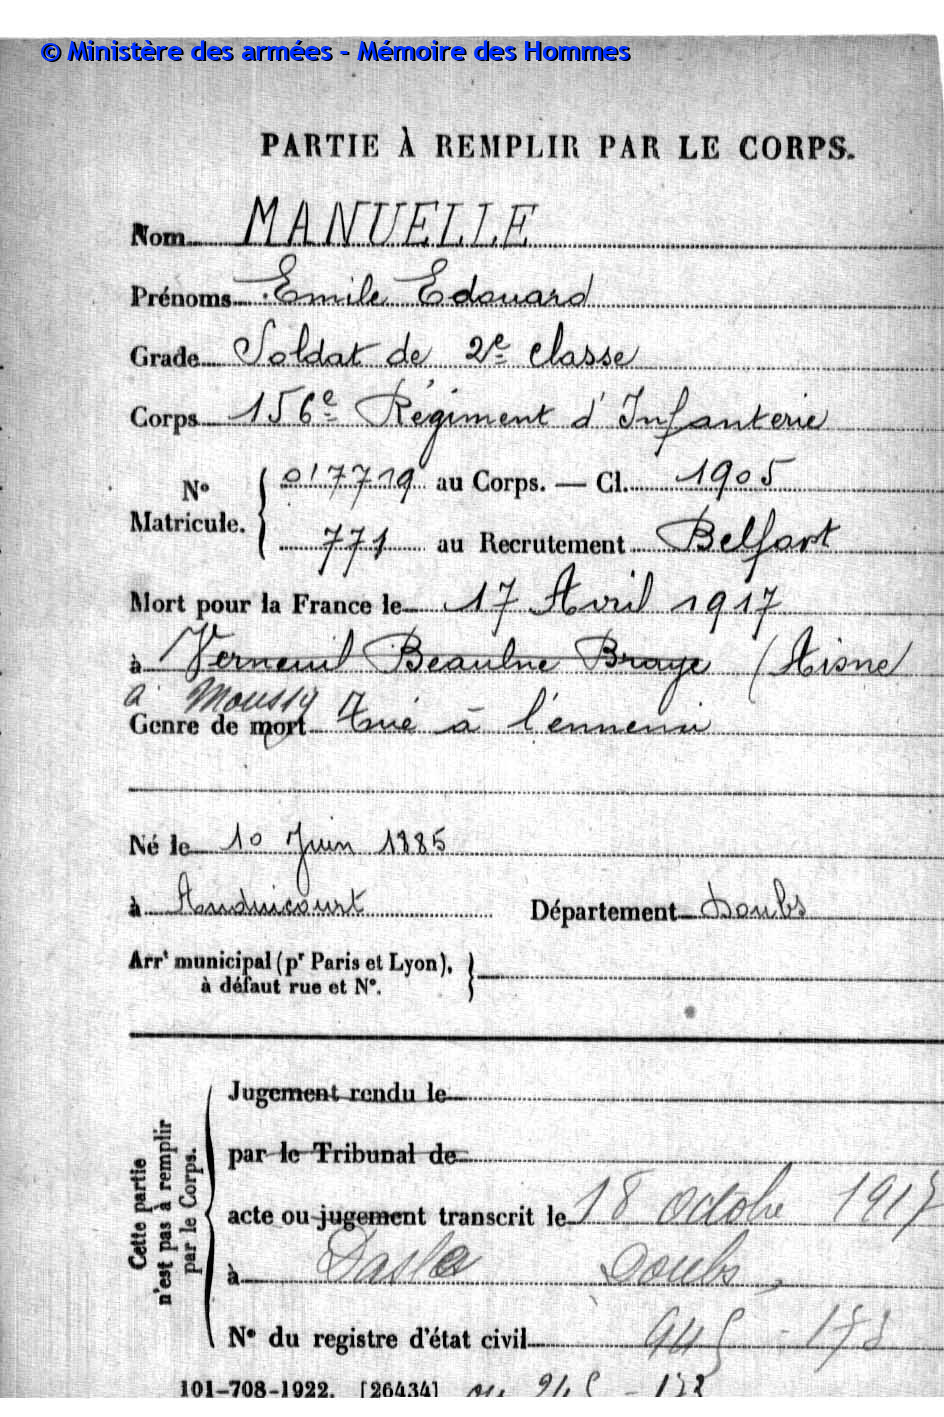 © Ministère des armées - Mémoire des Hommes
PARTIE À REMPLIR PAR LE CORPS.
Nom MANUELLE
Prénoms Emile Edouard
Grade Soldat de 2e classe
Corps 156e Régiment d'Infanterie
No Matricule. { 017719 au Corps. — Cl. 1905
771 au Recrutement Belfort
Mort pour la France le 17 Avril 1917
à Verneuil Beaulne Braye (Aisne
à Moussy
Genre de mort Tué à l'ennemi
Né le 10 Juin 1885
à Audincourt Département Doubs
Arrt municipal (pr Paris et Lyon), }
à défaut rue et No.
Cette partie
n'est pas à remplir
par le Corps.
Jugement rendu le
par le Tribunal de
acte ou jugement transcrit le 18 octobre 1917
à Dasle Doubs
No du registre d'état civil 945 - 178
101-708-1922. [26434]